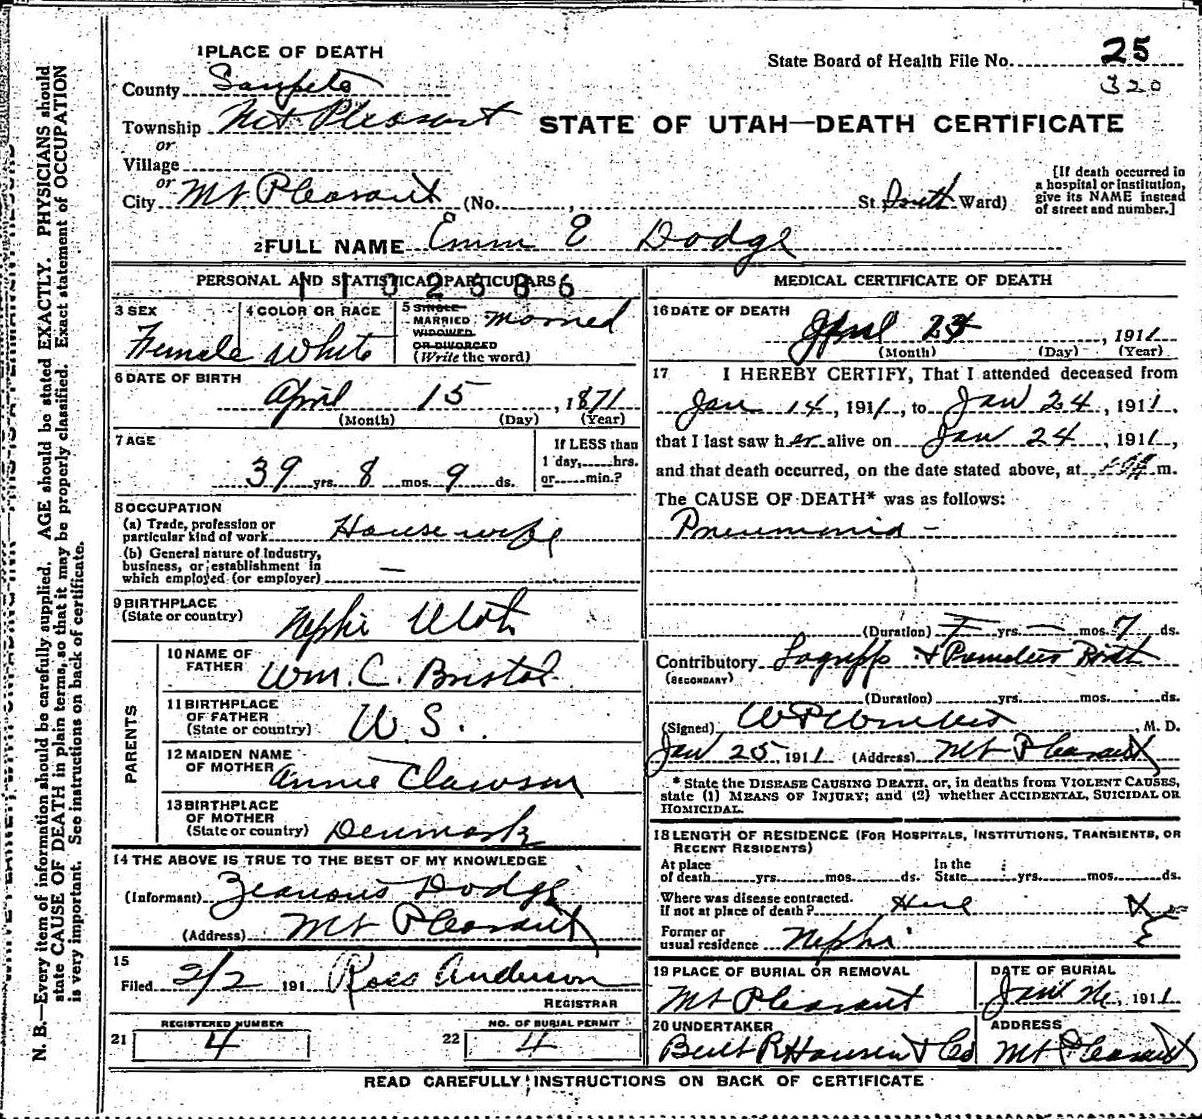 1 PLACE OF DEATH
State Board of Health File No. 25
320
County Sanpete
Township Mt Pleasant
STATE OF UTAH—DEATH CERTIFICATE
or
Village
or
City Mt Pleasant (No. , St. Ward)
[If death occurred in
a hospital or institution,
give its NAME instead
of street and number.]
2 FULL NAME Emm E Dodge
PERSONAL AND STATISTICAL PARTICULARS
3 SEX Female
4 COLOR OR RACE White
5 SINGLE
MARRIED
WIDOWED
OR DIVORCED
(Write the word) Married
6 DATE OF BIRTH
April 15, 1871
(Month) (Day) (Year)
7 AGE
39 yrs. 8 mos. 9 ds.
If LESS than
1 day, hrs.
or min.?
8 OCCUPATION
(a) Trade, profession or
particular kind of work House wife
(b) General nature of Industry,
business, or establishment in
which employed (or employer) —
9 BIRTHPLACE
(State or country) Nephi Utah
PARENTS
10 NAME OF
FATHER Wm. C. Bristol
11 BIRTHPLACE
OF FATHER
(State or country) U.S.
12 MAIDEN NAME
OF MOTHER Annie Clawson
13 BIRTHPLACE
OF MOTHER
(State or country) Denmark
14 THE ABOVE IS TRUE TO THE BEST OF MY KNOWLEDGE
(Informant) Dodge
(Address) Mt Pleasant
15
Filed 2/2 191 Ross Anderson
REGISTRAR
21 REGISTERED NUMBER 4
22 NO. OF BURIAL PERMIT 4
MEDICAL CERTIFICATE OF DEATH
16 DATE OF DEATH
24, 1911
(Month) (Day) (Year)
17 I HEREBY CERTIFY, That I attended deceased from
Jan 14, 1911, to Jan 24, 1911,
that I last saw her alive on Jan 24, 1911,
and that death occurred, on the date stated above, at m.
The CAUSE OF DEATH* was as follows:
Pneumonia -
(Duration) yrs. — mos. 7 ds.
Contributory Lagrippe +
(SECONDARY)
(Duration) yrs. mos. ds.
(Signed) , M. D.
Jan 25, 1911 (Address) Mt Pleasant
* State the DISEASE CAUSING DEATH, or, in deaths from VIOLENT CAUSES,
state (1) MEANS OF INJURY; and (2) whether ACCIDENTAL, SUICIDAL OR
HOMICIDAL.
18 LENGTH OF RESIDENCE (FOR HOSPITALS, INSTITUTIONS, TRANSIENTS, OR
RECENT RESIDENTS)
At place
of death yrs. mos. ds.
In the
State yrs. mos. ds.
Where was disease contracted.
If not at place of death? Here
Former or
usual residence Nephi
19 PLACE OF BURIAL OR REMOVAL
Mt Pleasant
DATE OF BURIAL
Jan , 1911
20 UNDERTAKER
R Hansen & Co
ADDRESS
Mt Pleasant
READ CAREFULLY INSTRUCTIONS ON BACK OF CERTIFICATE
N. B.—Every item of information should be carefully supplied. AGE should be stated EXACTLY. PHYSICIANS should
state CAUSE OF DEATH in plain terms, so that it may be properly classified. Exact statement of OCCUPATION
is very important. See instructions on back of certificate.